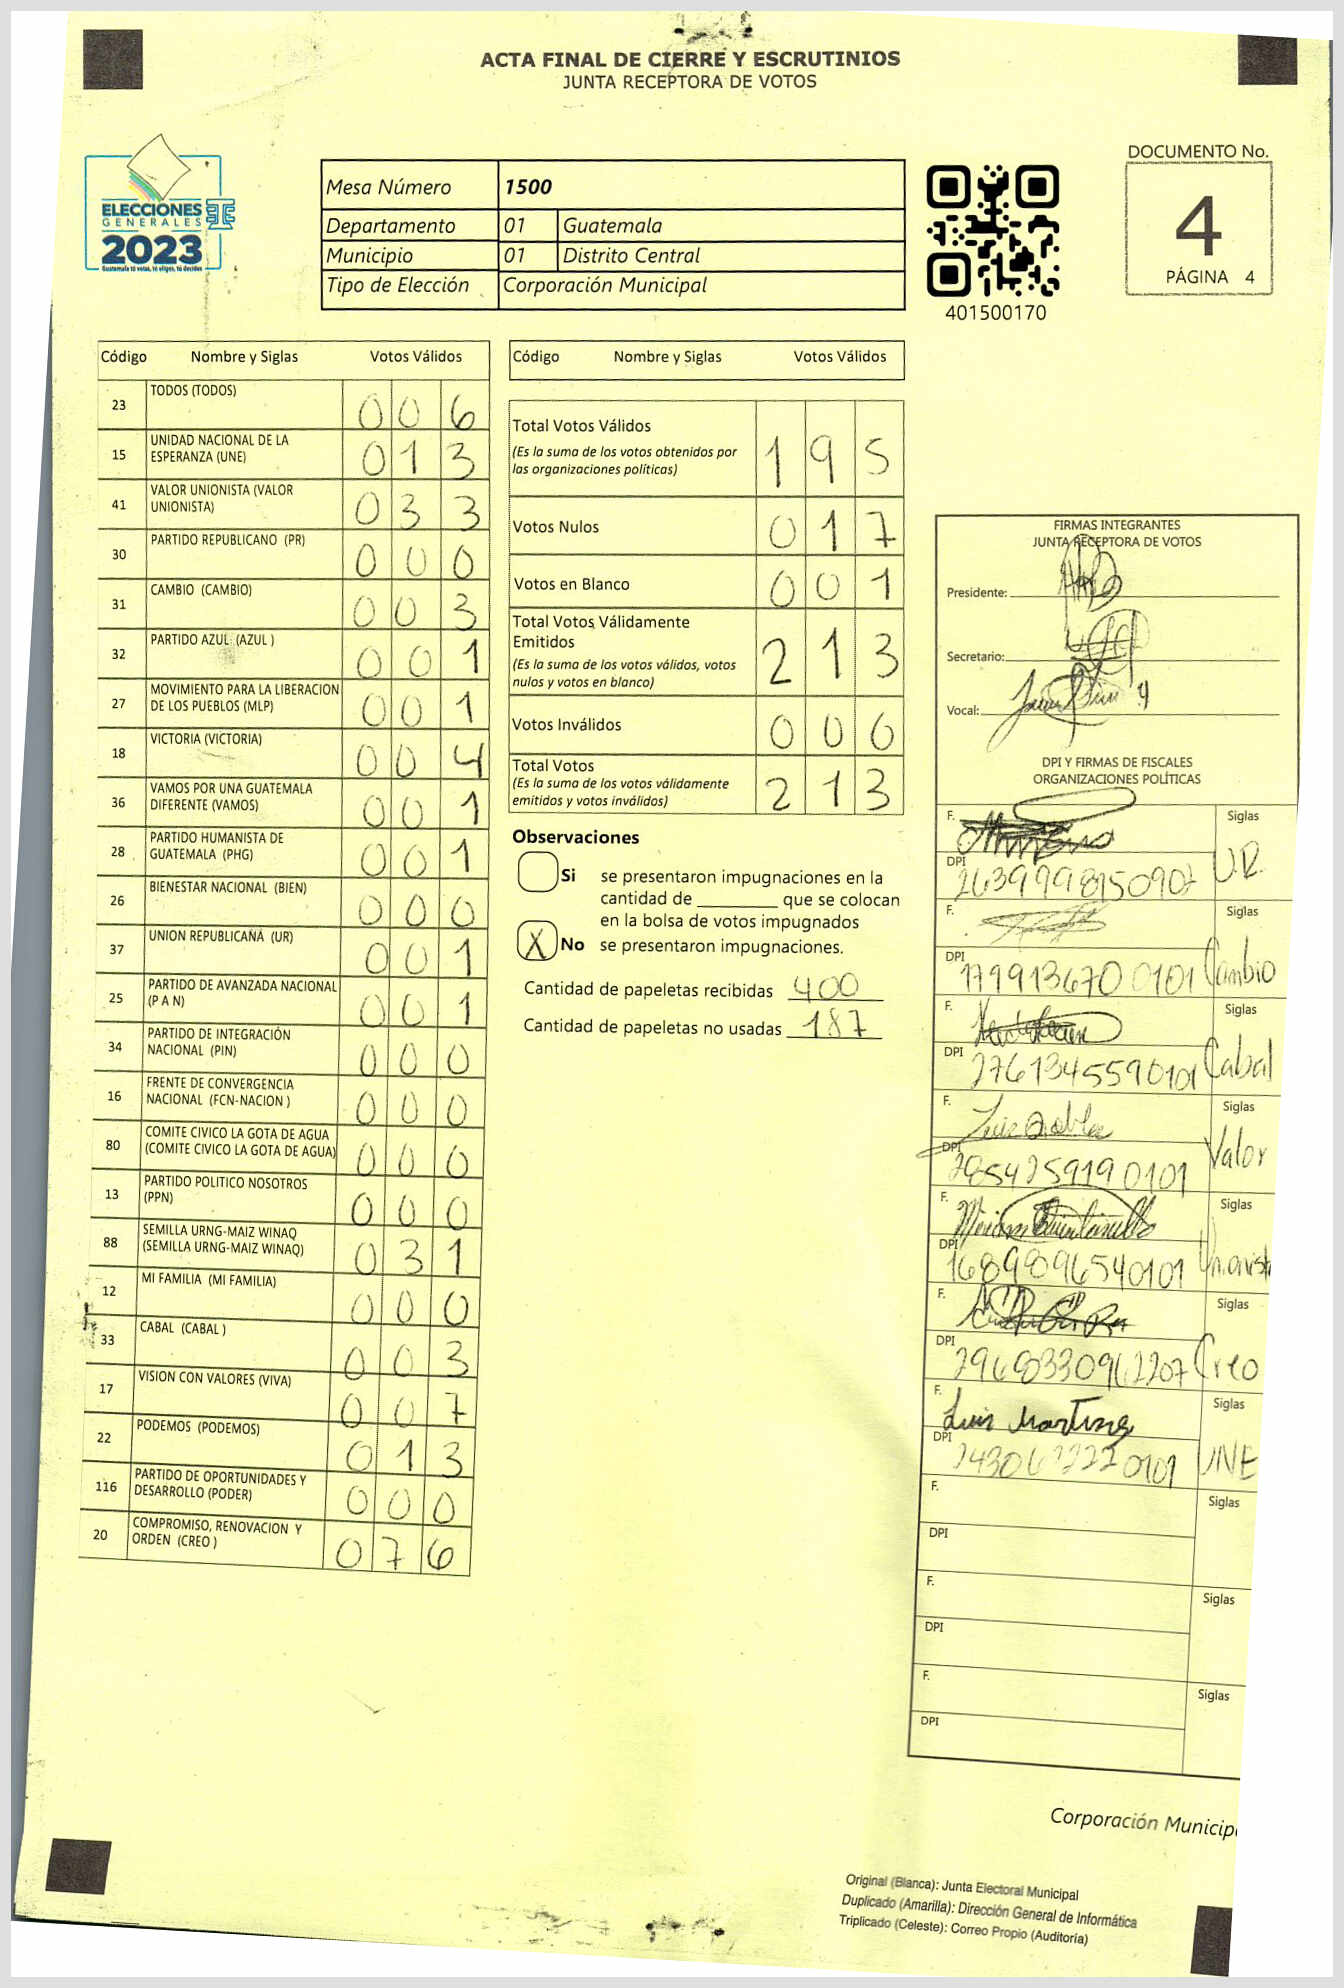 ACTA FINAL DE CIERRE Y ESCRUTINIOS
JUNTA RECEPTORA DE VOTOS
ELECCIONES
GENERALES
2023
Guatemala tú votas, tú eliges, tú decides
Mesa Número 1500
Departamento 01 Guatemala
Municipio 01 Distrito Central
Tipo de Elección Corporación Municipal
401500170
DOCUMENTO No.
4
PÁGINA 4
Código Nombre y Siglas Votos Válidos
23 TODOS (TODOS) 0 0 6
15 UNIDAD NACIONAL DE LA
ESPERANZA (UNE) 0 1 3
41 VALOR UNIONISTA (VALOR
UNIONISTA) 0 3 3
30 PARTIDO REPUBLICANO (PR) 0 0 0
31 CAMBIO (CAMBIO) 0 0 3
32 PARTIDO AZUL (AZUL ) 0 0 1
27 MOVIMIENTO PARA LA LIBERACION
DE LOS PUEBLOS (MLP) 0 0 1
18 VICTORIA (VICTORIA) 0 0 4
36 VAMOS POR UNA GUATEMALA
DIFERENTE (VAMOS) 0 0 1
28 PARTIDO HUMANISTA DE
GUATEMALA (PHG) 0 0 1
26 BIENESTAR NACIONAL (BIEN) 0 0 0
37 UNION REPUBLICANA (UR) 0 0 1
25 PARTIDO DE AVANZADA NACIONAL
(P A N) 0 0 1
34 PARTIDO DE INTEGRACIÓN
NACIONAL (PIN) 0 0 0
16 FRENTE DE CONVERGENCIA
NACIONAL (FCN-NACION ) 0 0 0
80 COMITE CIVICO LA GOTA DE AGUA
(COMITE CIVICO LA GOTA DE AGUA) 0 0 0
13 PARTIDO POLITICO NOSOTROS
(PPN) 0 0 0
88 SEMILLA URNG-MAIZ WINAQ
(SEMILLA URNG-MAIZ WINAQ) 0 3 1
12 MI FAMILIA (MI FAMILIA) 0 0 0
33 CABAL (CABAL ) 0 0 3
17 VISION CON VALORES (VIVA) 0 0 7
22 PODEMOS (PODEMOS) 0 1 3
116 PARTIDO DE OPORTUNIDADES Y
DESARROLLO (PODER) 0 0 0
20 COMPROMISO, RENOVACION Y
ORDEN (CREO ) 0 7 6
Código Nombre y Siglas Votos Válidos
Total Votos Válidos
(Es la suma de los votos obtenidos por
las organizaciones políticas) 1 9 5
Votos Nulos 0 1 7
Votos en Blanco 0 0 1
Total Votos Válidamente
Emitidos
(Es la suma de los votos válidos, votos
nulos y votos en blanco) 2 1 3
Votos Inválidos 0 0 0
Total Votos
(Es la suma de los votos válidamente
emitidos y votos inválidos) 2 1 3
Observaciones
Si se presentaron impugnaciones en la
cantidad de ________ que se colocan
en la bolsa de votos impugnados
X No se presentaron impugnaciones.
Cantidad de papeletas recibidas 400
Cantidad de papeletas no usadas 187
FIRMAS INTEGRANTES
JUNTA RECEPTORA DE VOTOS
Presidente:
Secretario:
Vocal:
DPI Y FIRMAS DE FISCALES
ORGANIZACIONES POLÍTICAS
F. Siglas
DPI U.R.
F. Siglas
DPI 177913670 0101 Cambio
F. Siglas
DPI 2761345590101 Cabal
F. Luis Robles Siglas
DPI 2854259190101 Valor
F. Miriam Quintanilla Siglas
DPI 1689896540101
F. Siglas
DPI 2968330962207 Creo
F. Luis Martinez Siglas
DPI UNE
F. Siglas
DPI
F. Siglas
DPI
F. Siglas
DPI
Corporación Municip
Original (Blanca): Junta Electoral Municipal
Duplicado (Amarilla): Dirección General de Informática
Triplicado (Celeste): Correo Propio (Auditoría)